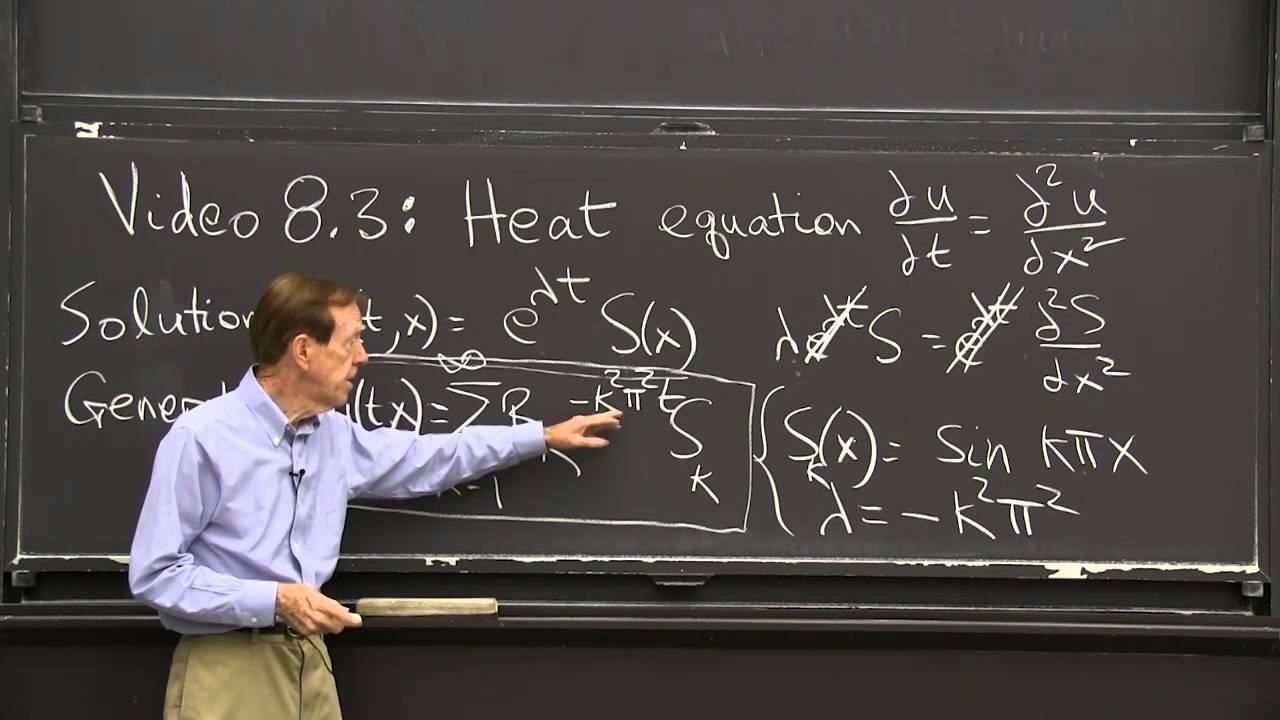 Video 8.3: Heat equation ∂u/∂t = ∂²u/∂x²
Solution (t,x) = e^λt S(x)
λe^λt S = e^λt ∂²S/∂x²
Gener (t x) = Σ^∞ B_k -k²π²t S_k
S_k(x) = sin kπx
λ = -k²π²